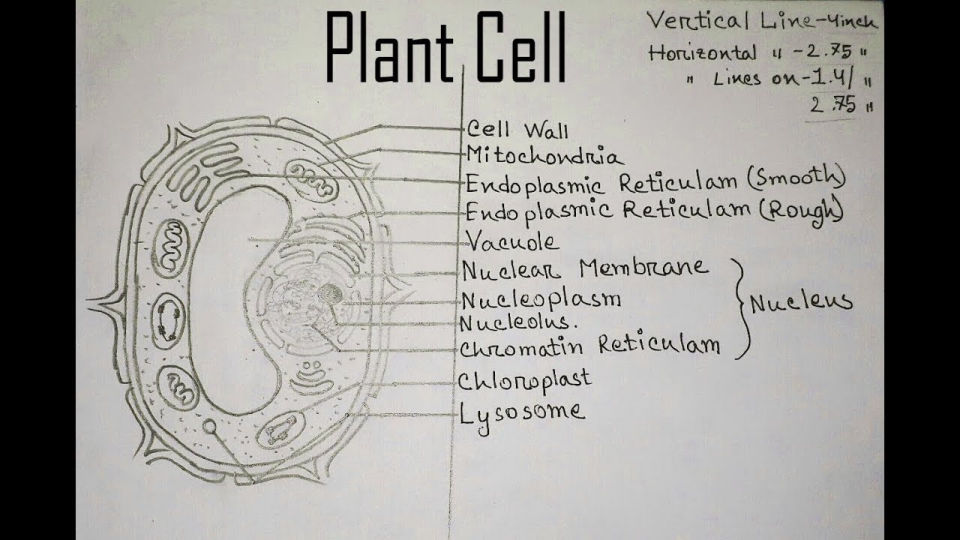 Plant Cell
Vertical Line-4inch
Horizontal " -2.75 "
" Lines on -1.4/ "
2.75 "
Cell Wall
Mitochondria
Endoplasmic Reticulam (Smooth)
Endoplasmic Reticulam (Rough)
Vacuole
Nuclear Membrane
Nucleoplasm
Nucleus
Nucleolus.
Chromatin Reticulam
Chloroplast
Lysosome